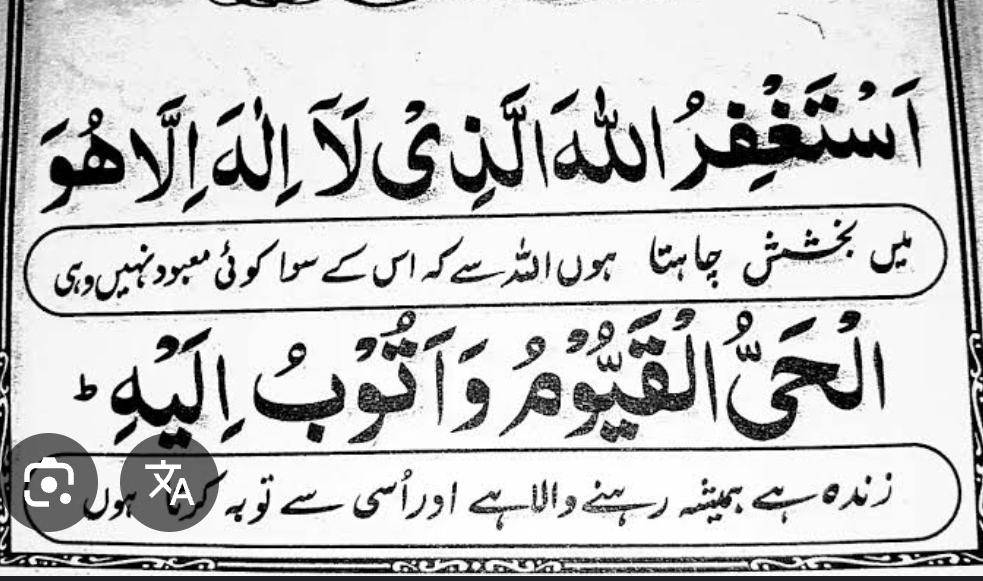 اَسْتَغْفِرُ اللّٰهَ الَّذِیْ لَآ اِلٰهَ اِلَّا هُوَ
میں بخشش چاہتا ہوں اللہ سے کہ اس کے سوا کوئی معبود نہیں وہی
الْحَیُّ الْقَیُّوْمُ وَ اَتُوْبُ اِلَیْهِ ط
زندہ ہے ہمیشہ رہنے والا ہے اور اُسی سے توبہ کرتا ہوں